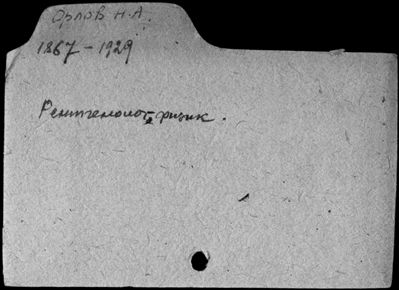 Орлов Н.А.
1867-1929
Рентгенолог-физик.